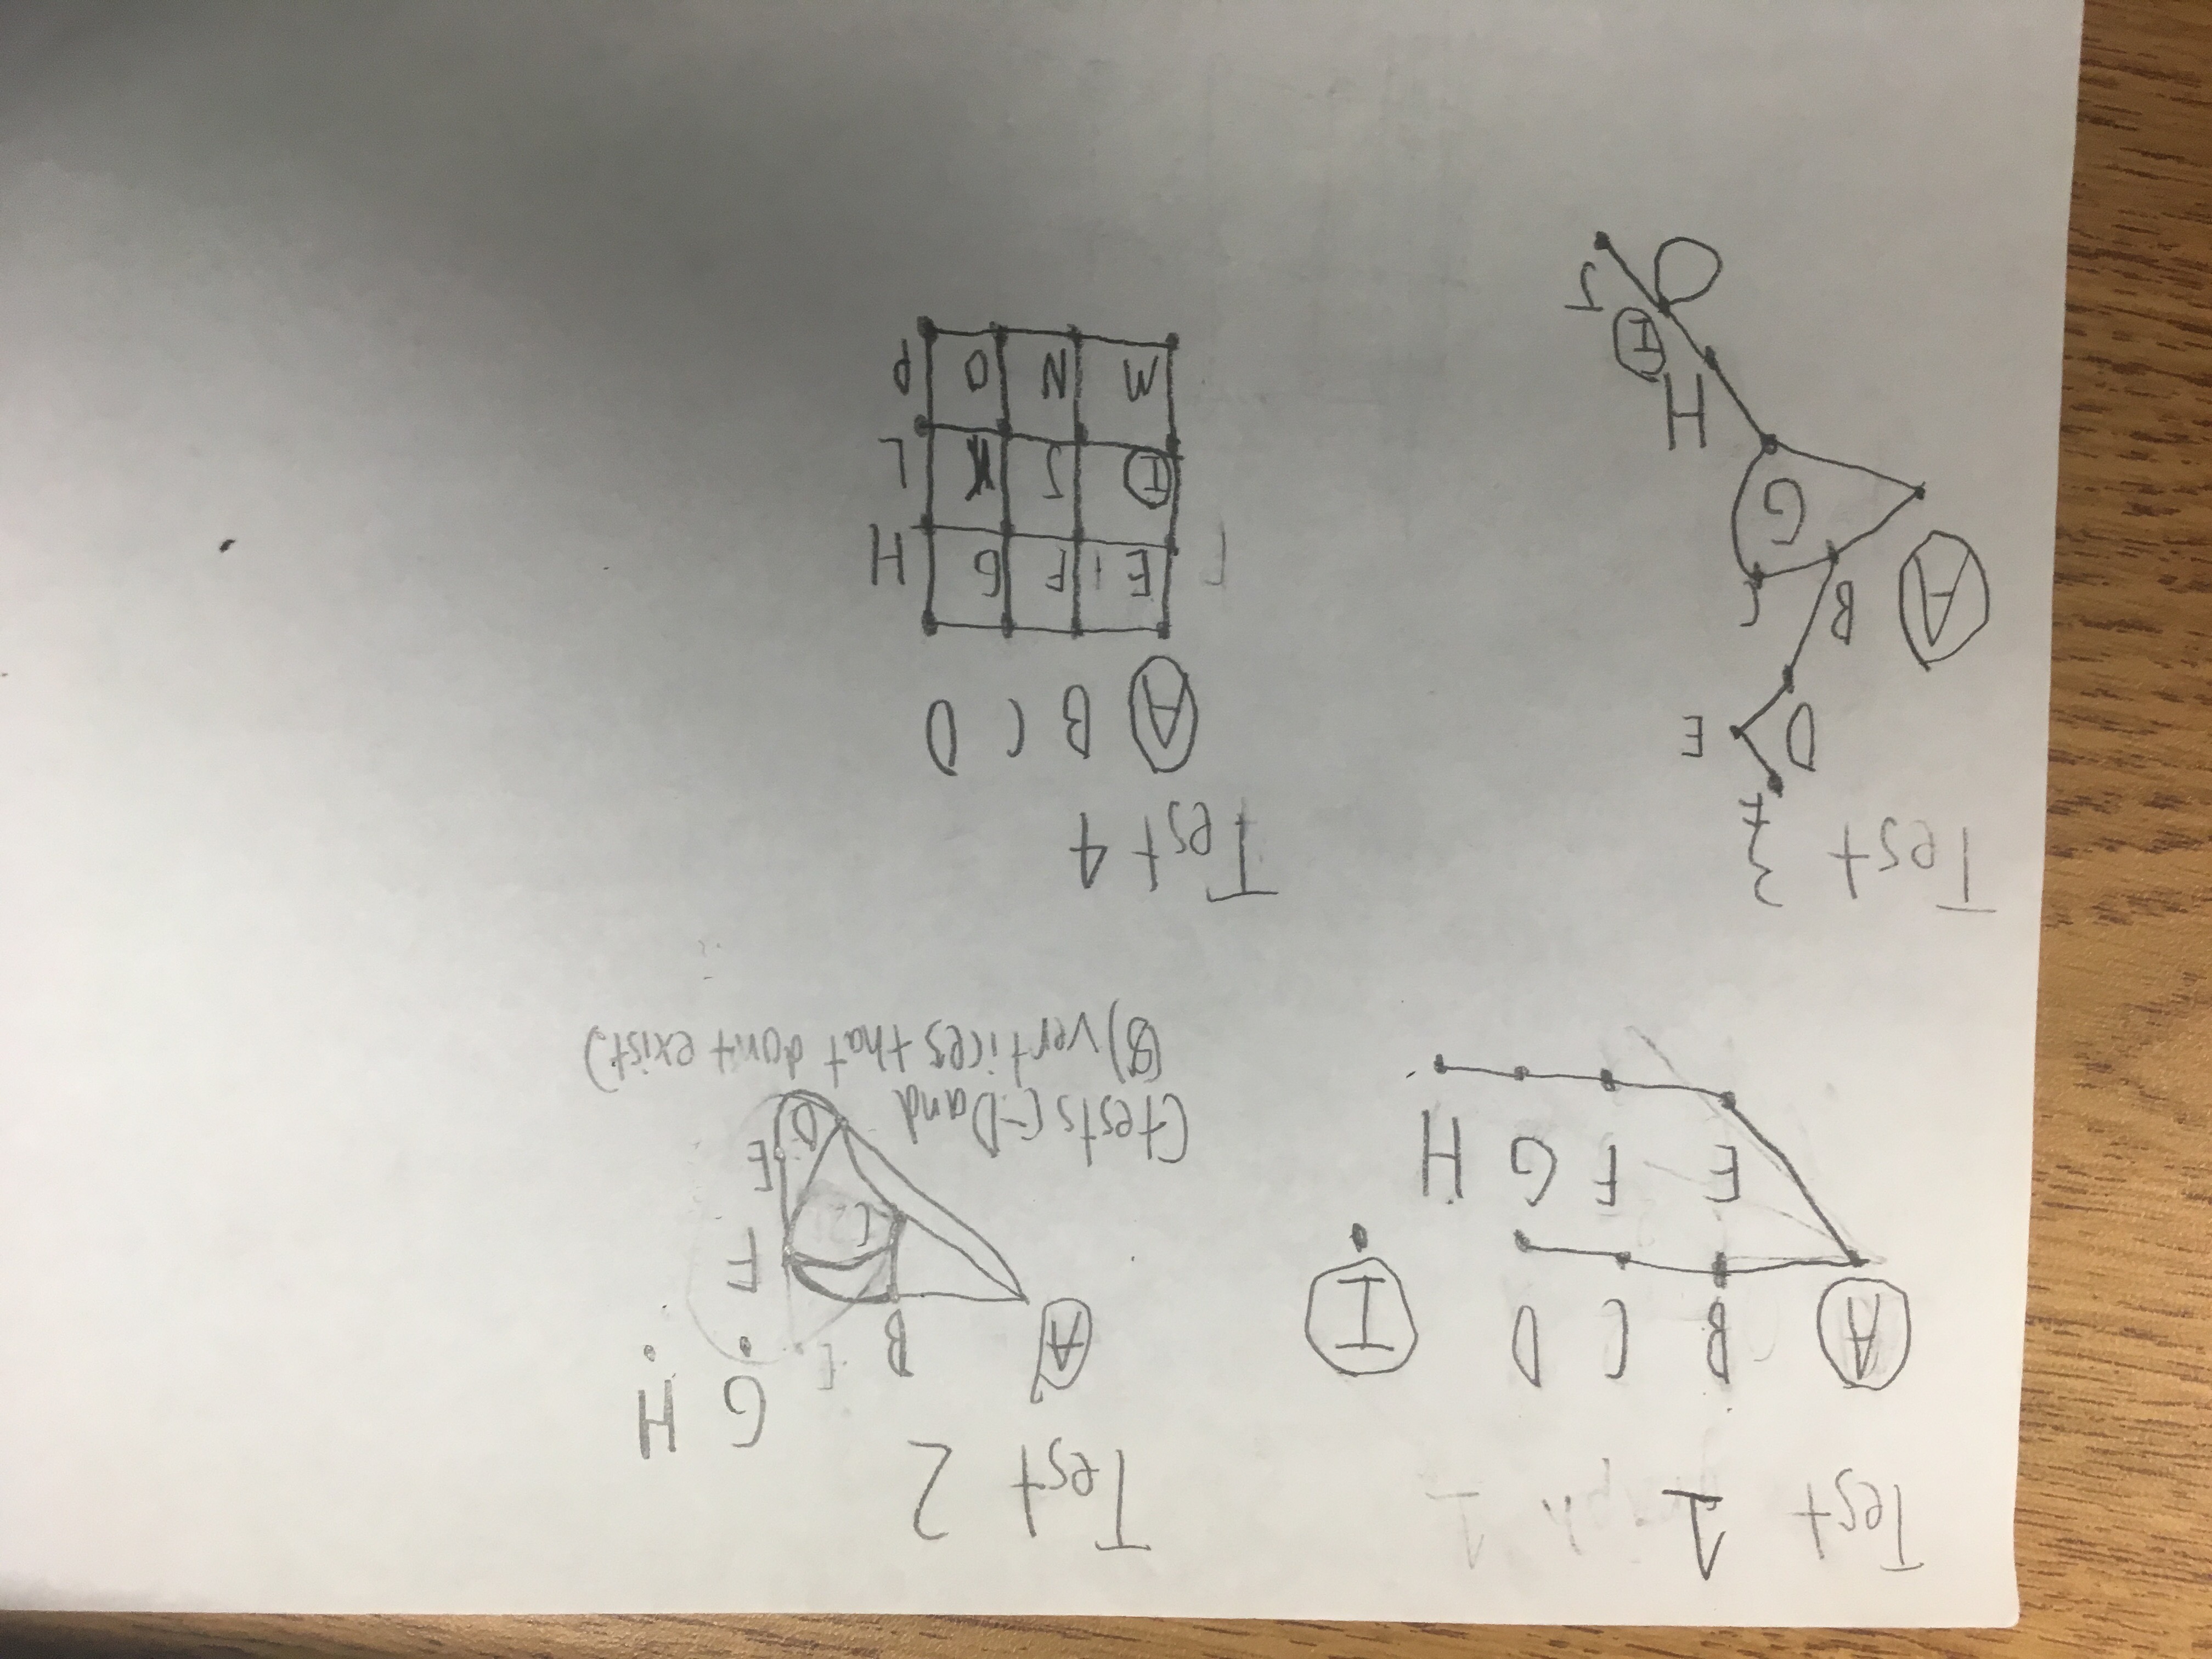 Test 1
A B C D I
E F G H
Test 2
G H
A B
F
C
E
D
(tests C-D and
(8) vertices that don't exist)
Test 3
F
D E
A B C
G
H
I
J
Test 4
A B C D
E F G H
I J K L
M N O P